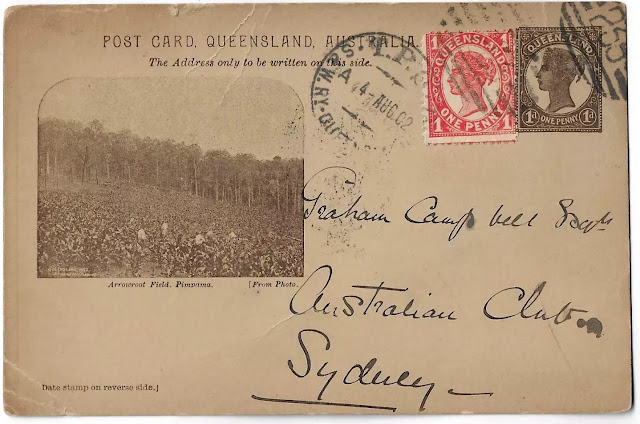 POST CARD, QUEENSLAND, AUSTRALIA.
The Address only to be written on this side.
QUEENSLAND
1 ONE PENNY 1
QUEENSLAND
1d ONE PENNY 1d
4-AUG.02
255
Arrowroot Field, Pimpama. [From Photo.
Graham Campbell Esqre
Australian Club
Sydney
Date stamp on reverse side.]